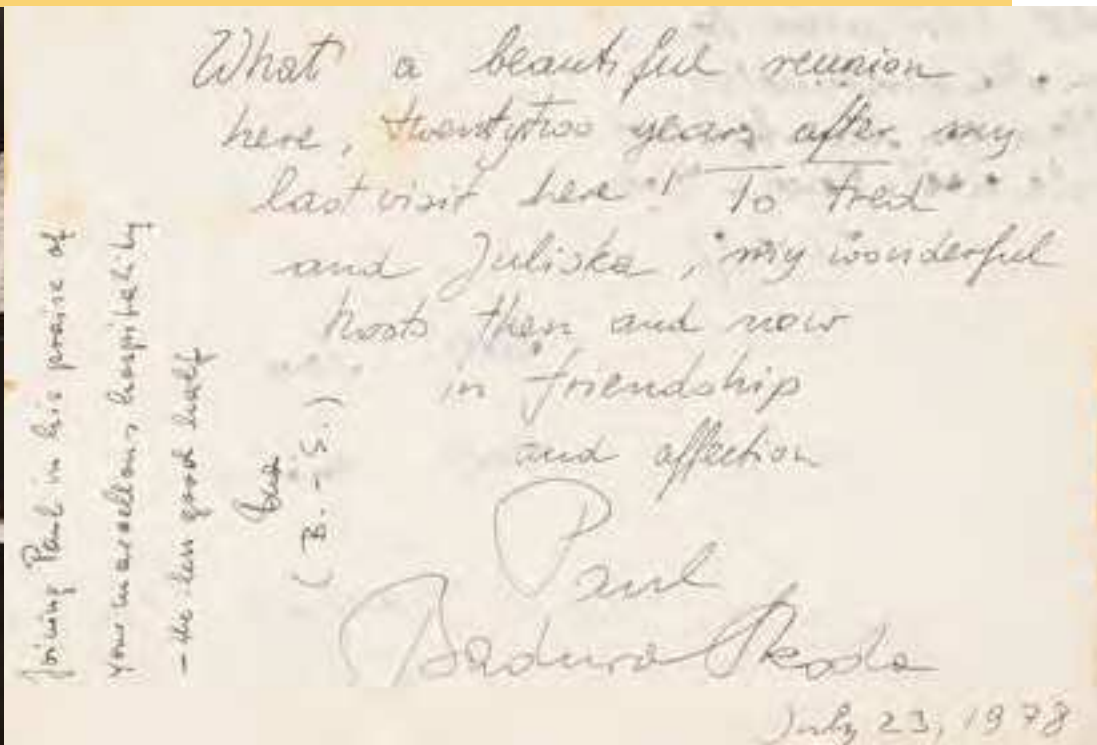 What a beautiful reunion
here, twentytwo years after my
last visit here! To Fred
and Juliska, my wonderful
hosts then and now
in friendship
and affection
Paul
Badura Skoda
July 23, 1978
Joining Paul in his praise of
your marvellous hospitality
- the less good half
Eva
(B.-S.)